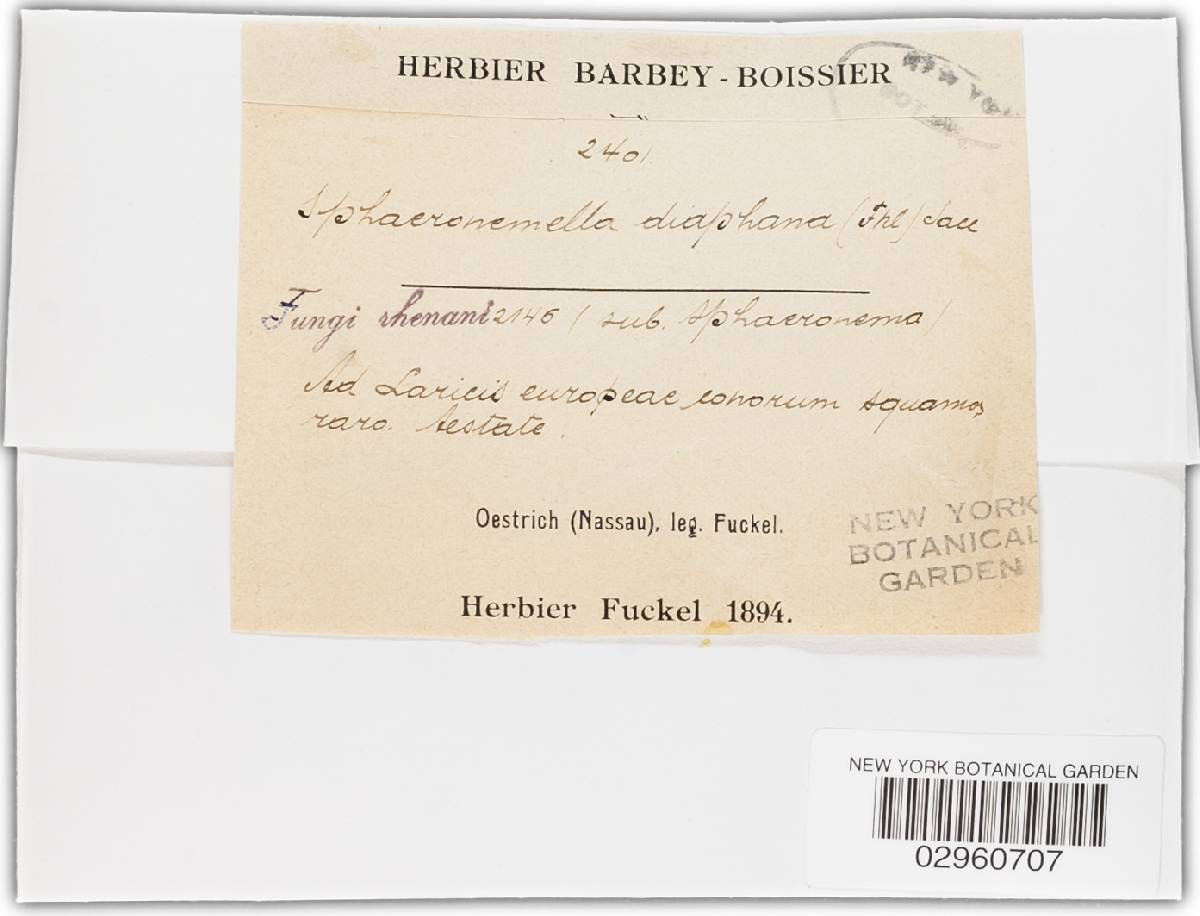 HERBIER BARBEY-BOISSIER
NEW YORK
BOT.
2401
Sphaeronemella diaphana (Fkl) Sacc
Fungi rhenani 2145 (sub. Sphaeronema)
Ad Laricis europeae conorum squamos
raro. Aestate.
Oestrich (Nassau), leg. Fuckel.
NEW YORK
BOTANICAL
GARDEN
Herbier Fuckel 1894.
NEW YORK BOTANICAL GARDEN
02960707